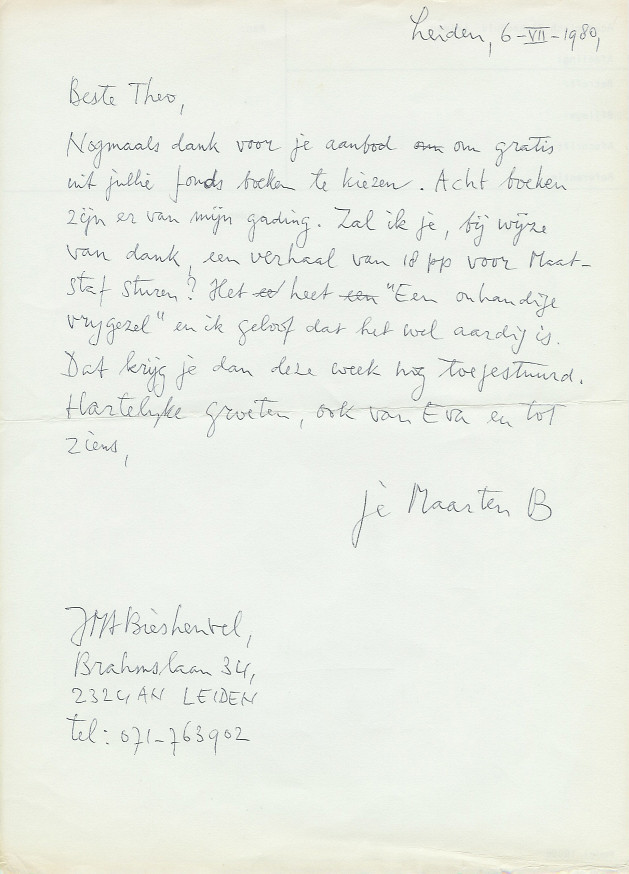 Leiden, 6-VII-1980,
Beste Theo,
Nogmaals dank voor je aanbod om om gratis
uit jullie fonds boeken te kiezen. Acht boeken
zijn er van mijn gading. Zal ik je, bij wijze
van dank, een verhaal van 18 pp voor Maat-
staf sturen? Het heet een "Een onhandige
vrijgezel" en ik geloof dat het wel aardig is.
Dat krijg je dan deze week nog toegestuurd.
Hartelijke groeten, ook van Eva en tot
ziens,
je Maarten B
JMA Biesheuvel,
Brahmslaan 34,
2324 AN LEIDEN
tel: 071-763902